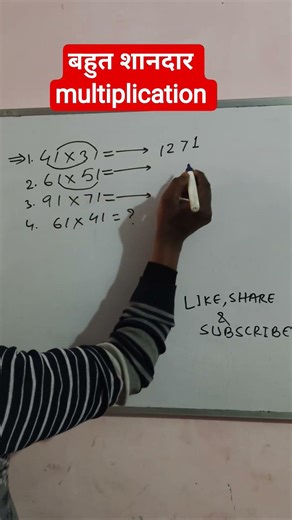 बहुत शानदार
multiplication
⇒1. 41×31=→ 1271
2. 61×51=→
3. 91×71=→
4. 61×41=?
LIKE, SHARE
&
SUBSCRIBE